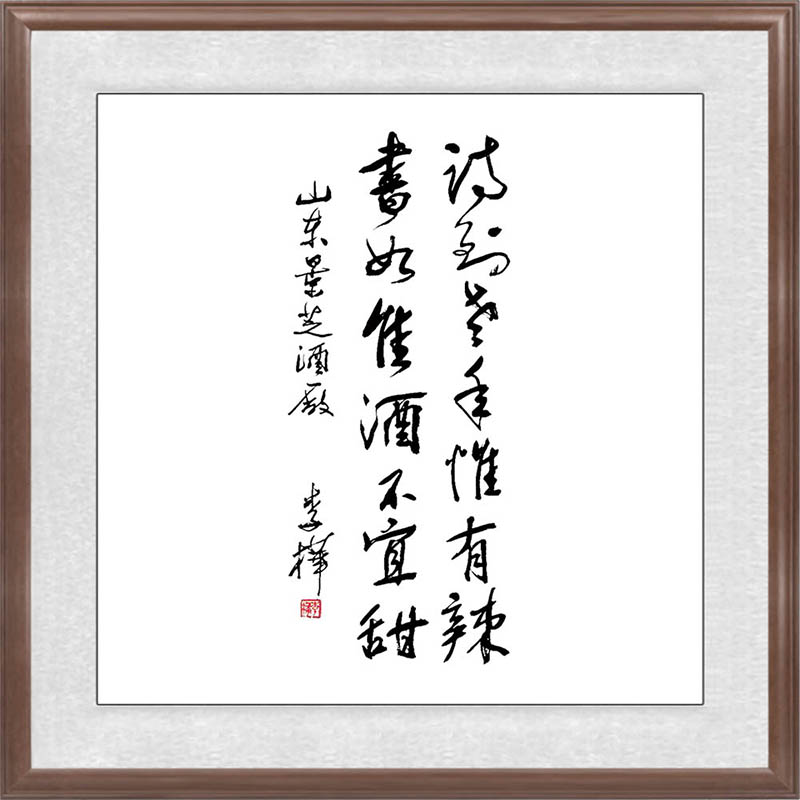 诗到老年惟有辣
書如佳酒不宜甜
山东景芝酒厰
李樺